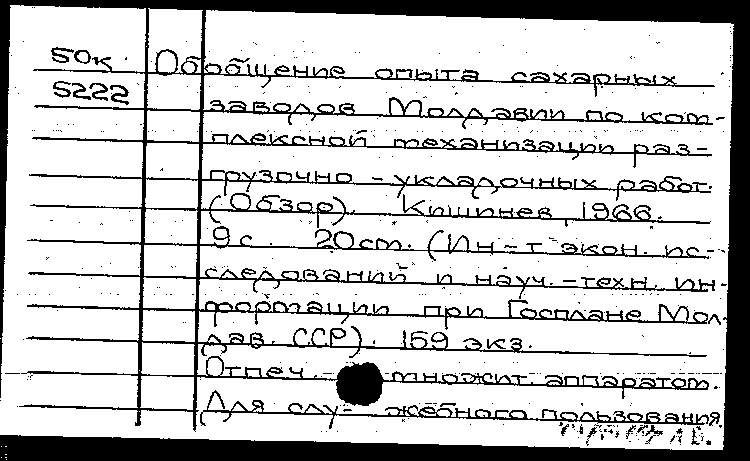 50к Обобщение опыта сахарных
5222 заводов Молдавии по ком-
плексной механизации раз-
грузочно-укладочных работ.
(Обзор). Кишинев, 1966.
9 с. 20 см. (Ин-т экон. ис-
следований и науч.-техн. ин-
формации при Госплане Мол-
дав. ССР). 159 экз.
Отпеч. множит. аппаратом.
Для слу- жебного пользования.